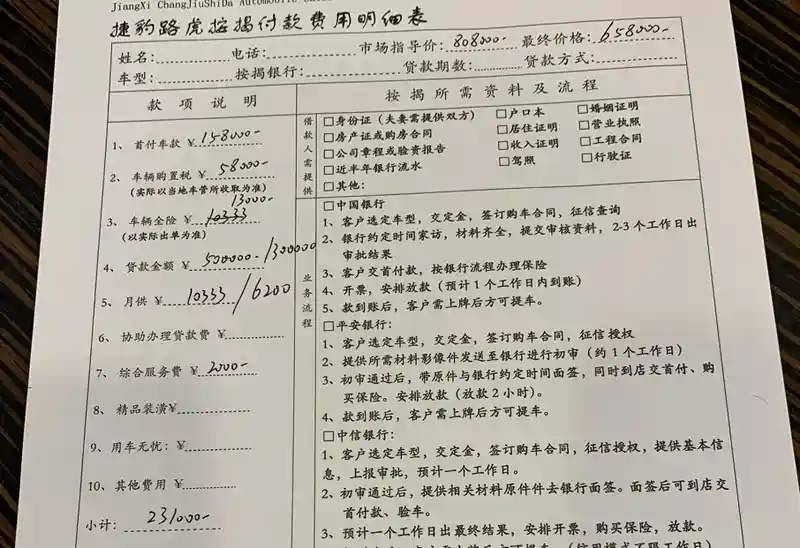 JiangXi ChangJiuShiDa Automobile
捷豹路虎按揭付款费用明细表
姓名: 电话: 市场指导价: 808000- 最终价格: 658000-
车型: 按揭银行: 贷款期数: 贷款方式:
款项说明
1、首付车款 ¥ 158000-
2、车辆购置税 ¥ 58000-
(实际以当地车管所收取为准)
13000-
3、车辆全险 ¥ 10333
(以实际出单为准)
4、贷款金额 ¥ 500000-/300000
5、月供 ¥ 10333/6200
6、协助办理贷款费 ¥
7、综合服务费 ¥ 2000-
8、精品装潢¥
9、用车无忧: ¥
10、其他费用 ¥
小计: 231000-
按揭所需资料及流程
借款人需提供
□身份证(夫妻需提供双方) □户口本 □婚姻证明
□房产证或购房合同 □居住证明 □营业执照
□公司章程或验资报告 □收入证明 □工程合同
□近半年银行流水 □驾照 □行驶证
□其他:
业务流程
□中国银行
1、客户选定车型,交定金,签订购车合同,征信查询
2、银行约定时间家访,材料齐全,提交审核资料,2-3个工作日出
审批结果
3、客户交首付款,按银行流程办理保险
4、开票,安排放款(预计1个工作日内到账)
5、款到账后,客户需上牌后方可提车。
□平安银行:
1、客户选定车型,交定金,签订购车合同,征信授权
2、提供所需材料影像件发送至银行进行初审(约1个工作日)
3、初审通过后,带原件与银行约定时间面签,同时到店交首付、购
买保险。安排放款(放款2小时)。
4、款到账后,客户需上牌后方可提车。
□中信银行:
1、客户选定车型,交定金,签订购车合同,征信授权,提供基本信
息,上报审批,预计一个工作日。
2、初审通过后,提供相关材料原件件去银行面签。面签后可到店交
首付款、验车。
3、预计一个工作日出最终结果,安排开票,购买保险,放款。